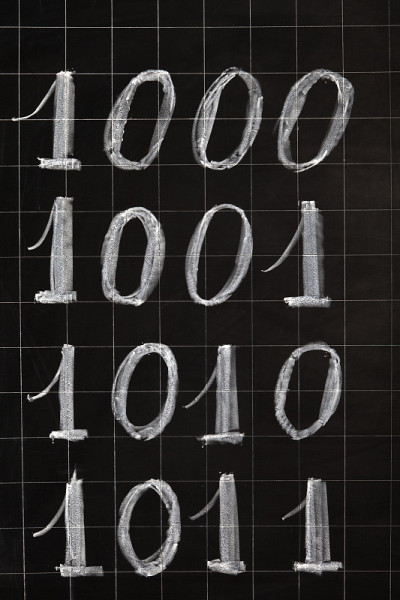 1000
1001
1010
1011